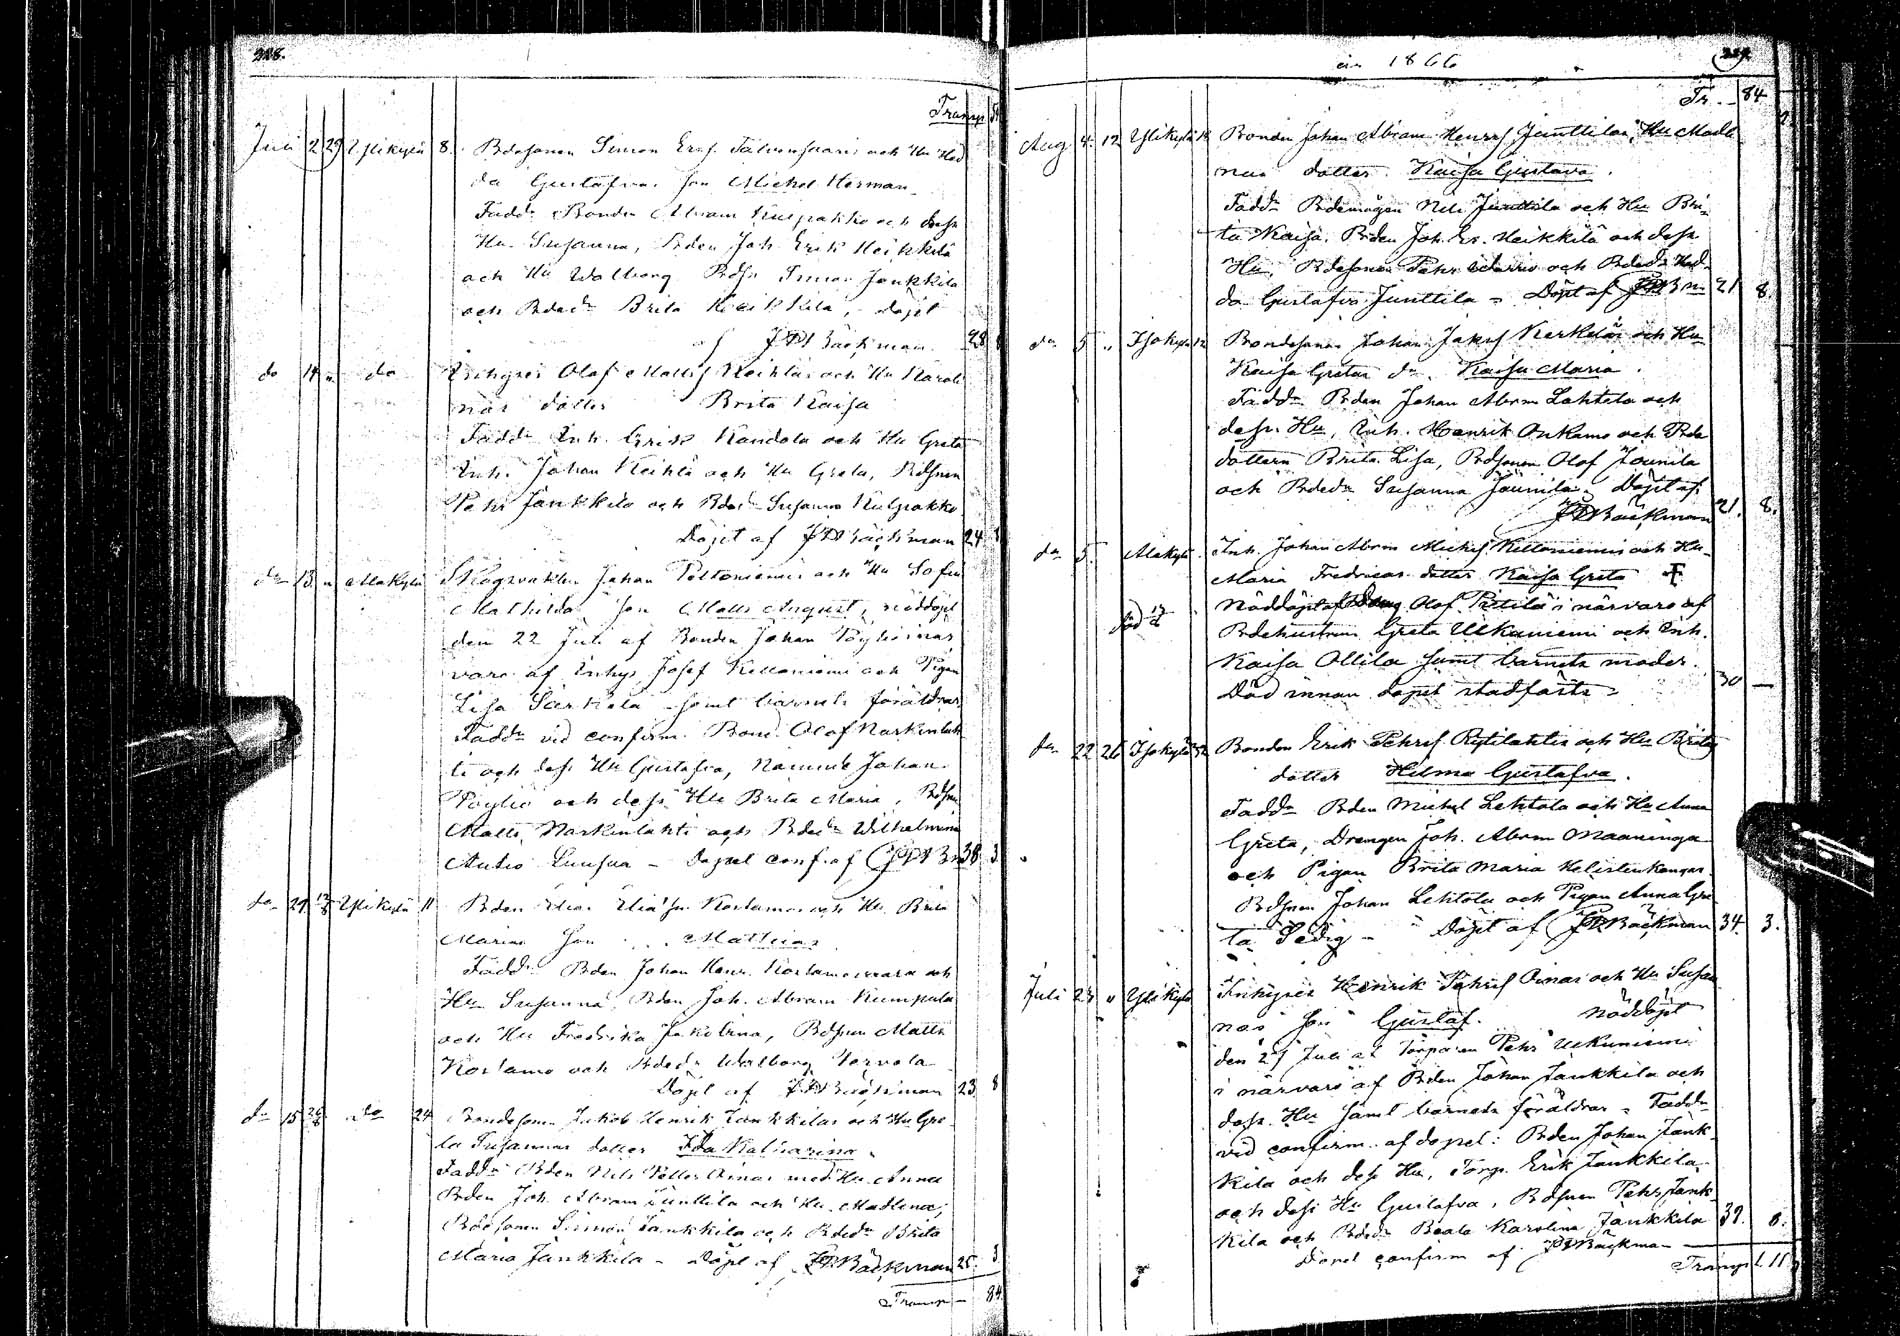 228.
Transp
Juli 2 29 Ylikylä 8. Bdesonen Simon Ersf. och Hu Hed
da Gustafvas son Michel Herman
Fadd: Bonden Abram Kulpakko och dess
Hu Susanna, Bden Joh. Erik Heikkilä
och Hu Walborg Bdsn Simon Jankkila
och Bdedr Brita Heikkilä, Döpt
af JW Bäckman 28
do 14 " do Inhyses Olof Mattsf Keihläs och Hu Karoli
nas dotter Brita Kaisa
Fadd: Inh. Erik Kandola och Hu Greta
Inh. Johan Keihlä och Hu Greta, Bdsonen
Pehr Jankkila och Bdedr Susanna Kulpakko
Döpt af JW Bäckman 24
do 13 " Alakylä Skogvakten Johan Peltoniemis och Hu Sofia
Mathildas son Matts August, nöddöpt
den 22 Juli af Bonden Johan Pöyliö i när
varo af Inhys Josef Kelloniemi och Pigan
Lisa Särkelä samt barnets föräldrar
Fadd: vid confirm. Bond. Olof Narkinlah
ti och dess Hu Gustafva, Nämnde Johan
Pöyliö och dess Hu Brita Maria, Bdsn
Matts Narkinlahti och Bdedr Wilhelmina
Autio Luusua - Dopet conf af JW Bn 38 3
do 29 12/8 Ylikylä 11 Bden Elias Eliæsn Kostamos och Hu Brita
Marias son Mathias
Fadd: Bden Johan Henr. Kostamovaara och
Hu Susanna, Bden Joh. Abram Kumpula
och Hu Fredrika Jakobina, Bdsnen Matts
Kostamo och Bdedr Walborg Tervola
Döpt af JW Bäckman 23 8
do 15 26/8 do 24 Bondeson Jakob Henrik Jankkilas och Hu Gre
ta Susannas dotter Ida Katharina.
Fadd: Bden Nils Petter Oinas med Hu Anna
Bden Joh. Abram Junttila och Hu Madlena,
Bdesonen Simon Jankkila och Bdedr Brita
Maria Jankkila - Döpt af JW Bäckman 25 3
Transp - 84
år 1866
229
Tr. - 84
Aug 4 12 Ylikylä 18 Bonden Johan Abram Henrsf Junttilas, Hu Madle
nas dotter Kaisa Gustava.
Fadd: Bdemågen Nils Junttila och Hu Bri
ta Kaisa. Bden Joh. Er. Heikkilä och dess
Hu, Bdesonen Pehr och Bdedr Hed
da Gustafva Junttila - Döpt af JW Bn 21 8.
do 5 " Isokylä 12 Bondesonen Johan Jaksf Kerkeläs och Hu
Kaisa Gretas dr Kaisa Maria.
Fadd: Bden Johan Abrm Lehtola och
dess Hu, Inh. Henrik Onkamo och Bde
dottern Brita Lisa, Bdsonen Olof Jounila
och Bdedr Susanna Jounila. Döpt af
JW Bäckman 21. 8.
do 5 Alakylä Inh. Johan Abrm Michsf Kelloniemis och Hu
Maria Fredricas dotter Kaisa Greta
Nöddöpt af Olof Pietilä i närvaro af
död 12/8 Bdehustrun Greta Ulkuniemi och Inh.
Kaisa Ollila samt barnets moder.
Död innan dopet stadfästs - 30 -
do 22 26 Isokylä 32 Bonden Erik Pehrsf Rytilahtis och Hu Britas
dotter Hilma Gustafva.
Fadd: Bden Michel Lehtola och Hu Anna
Greta, Drengen Joh. Abrm Maaninga
och Pigan Brita Maria Helistenkangas.
Bdsnen Johan Lehtola och Pigan Anna Gre
ta - Döpt af JW Bäckman 34. 3.
Juli 23 " Ylikylä Inhyses Henrik Pehrsf Oinas och Hu Susan
nas son Gustaf. nöddöpt
den 27 Juli af Torparen Pehr Ulkuniemi
i närvaro af Bden Johan Jankkila och
dess Hu samt barnets föräldrar - Fadd:
vid confirm. af dopet: Bden Johan Jank
kila och dess Hu, Torp. Erik Jankkila
och dess Hu Gustafva, Bdsnen Pehr Jank
kila och Bdedr Beata Karolina Jankkila 39. 8.
Dopet confirm af JW Bäckman
Transp